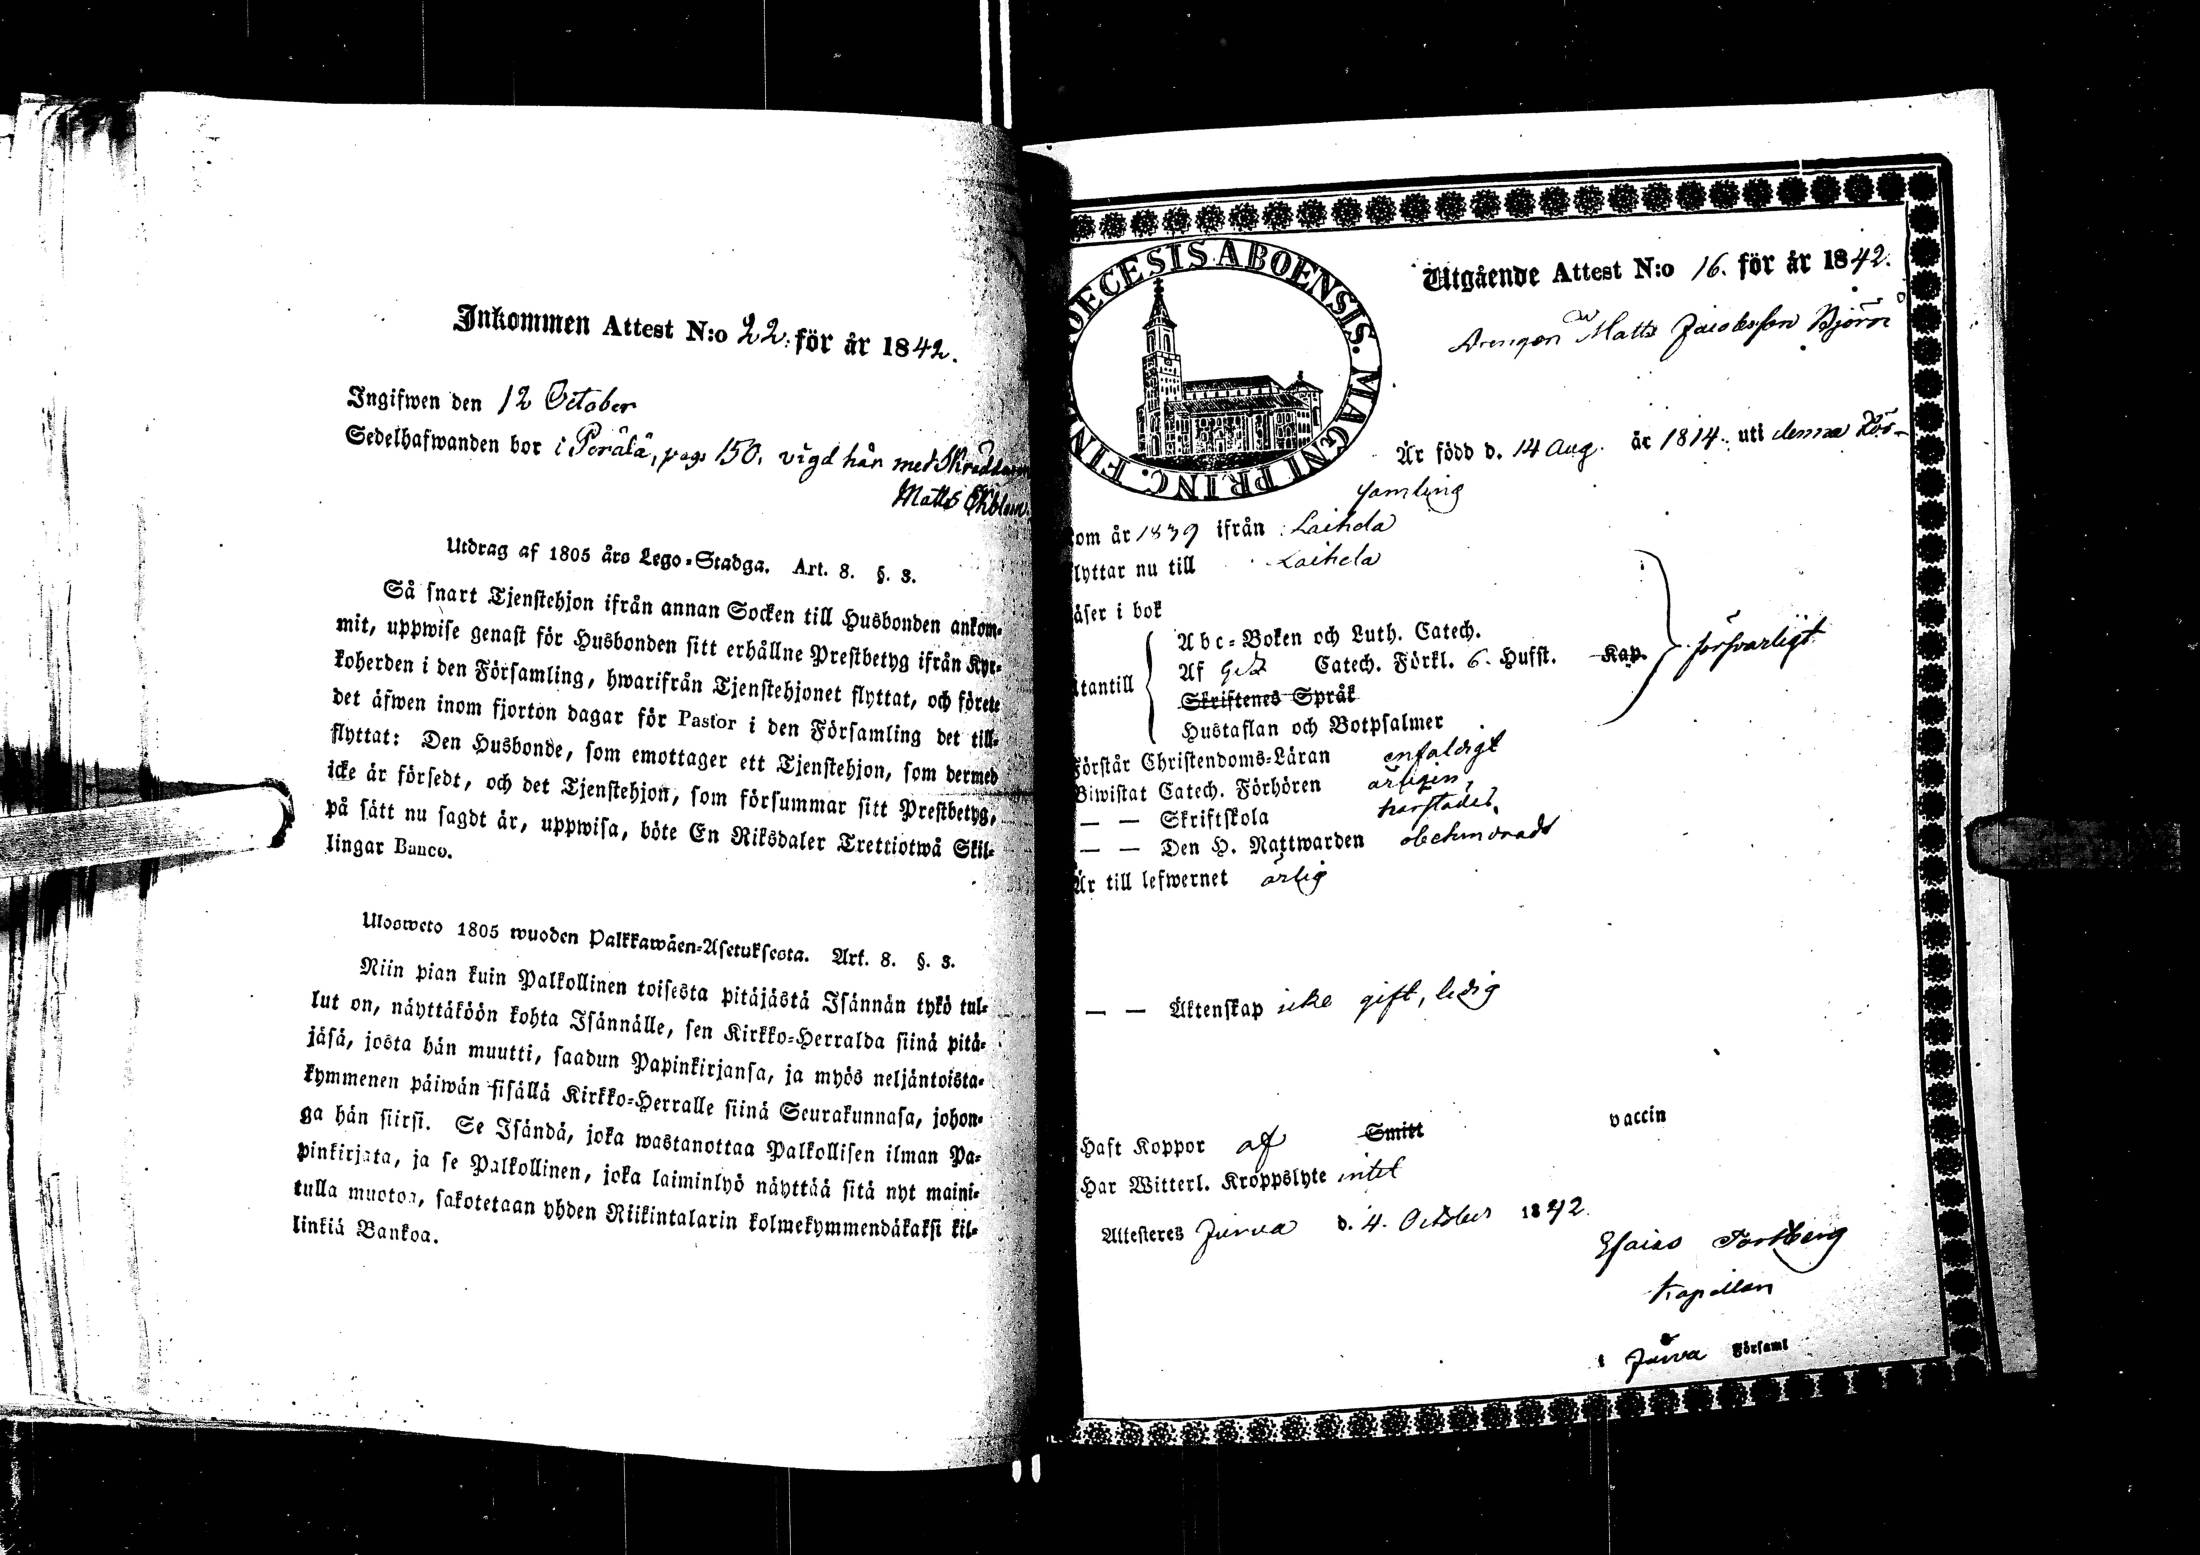 Inkommen Attest N:o 22. för år 1842.
Ingifwen den 12 October
Sedelhafwanden bor i Perälä, pag. 150, vigd här med Skräddaren
Matts Ekblom.
Utdrag af 1805 års Lego-Stadga. Art. 8. §. 3.
Så snart Tjenstehjon ifrån annan Socken till Husbonden ankom-
mit, uppwise genast för Husbonden sitt erhållne Prestbetyg ifrån Kyr-
koherden i den Församling, hwarifrån Tjenstehjonet flyttat, och förete
det äfwen inom fjorton dagar för Pastor i den Församling det till-
flyttat: Den Husbonde, som emottager ett Tjenstehjon, som dermed
icke är försedt, och det Tjenstehjon, som försummar sitt Prestbetyg,
på sätt nu sagdt är, uppwisa, böte En Riksdaler Trettiotwå Skil-
lingar Banco.
Ulosweto 1805 wuoden Palkkawäen-Asetuksesta. Art. 8. §. 3.
Niin pian kuin Palkollinen toisesta pitäjästä Isännän tykö tul-
lut on, näyttäköön kohta Isännälle, sen Kirkko-Herralda siinä pitä-
jäsä, josta hän muutti, saadun Papinkirjansa, ja myös neljäntoista-
kymmenen päiwän sisällä Kirkko-Herralle siinä Seurakunnasa, johon-
ga hän siirsi. Se Isändä, joka wastanottaa Palkollisen ilman Pa-
pinkirjata, ja se Palkollinen, joka laiminlyö näyttää sitä nyt maini-
tulla muotoa, sakotetaan yhden Riikintalarin kolmekymmendäkaksi kil-
linkiä Bankoa.
DIOECESIS ABOENSIS. MAGNI PRINC. FINL
Utgående Attest N:o 16. för år 1842.
Drengen Matts Jacobsson Björn
Är född d. 14 Aug. år 1814. uti denna För-
samling
kom år 1839 ifrån Laihela
flyttar nu till Laihela
Läser i bok
Utantill
Abc-Boken och Luth. Catech.
Af Catech. Förkl. 6. Hufst. Kap.
Skriftenes Språk
Hustaflan och Botpsalmer
försvarligt
Förstår Christendoms-Läran enfaldigt
Biwistat Catech. Förhören årligen
— — Skriftskola
— — Den H. Nattwarden obehindradt
Är till lefwernet ärlig
— — Äktenskap icke gift, ledig
Haft Koppor af Smitt vaccin
Har Witterl. Kroppslyte intet
Attesteres Jurva d. 4. October 1842.
Esaias
Kapellan
i Jurva Församl